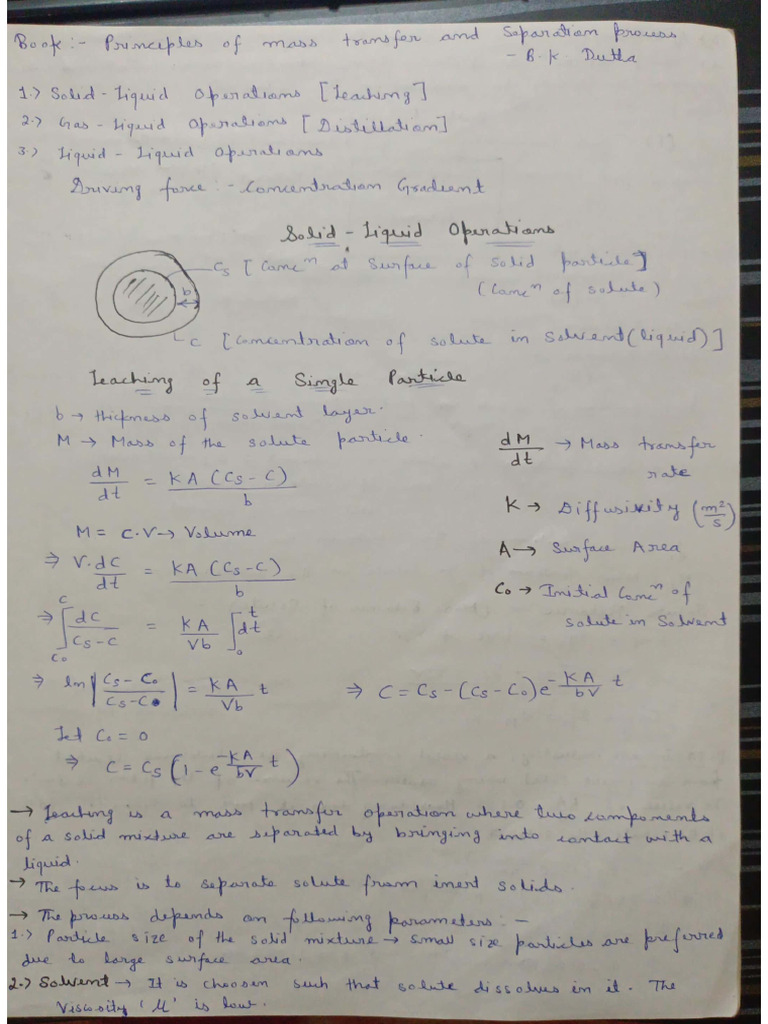 Book:- Principles of mass transfer and Separation Process
- B.K. Dutta
1.) Solid-Liquid Operations [Leaching]
2.) Gas-Liquid Operations [Distillation]
3.) Liquid-Liquid Operations
Driving force:- Concentration Gradient
Solid-Liquid Operations
Cs [Concⁿ at Surface of solid particle]
(Concⁿ of solute)
b
C [Concentration of solute in Solvent (liquid)]
Leaching of a Single Particle
b → thickness of solvent layer.
M → Mass of the solute particle.
dM/dt → Mass transfer rate
dM/dt = KA(Cs-C)/b
K → Diffusivity (m²/s)
M = C.V → Volume
A → Surface Area
⇒ V.dC/dt = KA(Cs-C)/b
Co → Initial Concⁿ of solute in Solvent
⇒ ∫_{Co}^{C} dC/(Cs-C) = KA/Vb ∫_{0}^{t} dt
⇒ ln|(Cs-Co)/(Cs-C)| = KA/Vb t ⇒ C = Cs-(Cs-Co)e^{-KA/bV t}
Let Co = 0
⇒ C = Cs(1-e^{-KA/bV t})
→ Leaching is a mass transfer operation where two components
of a solid mixture are separated by bringing into contact with a
liquid.
→ The focus is to separate solute from inert solids.
→ The process depends on following parameters:-
1.) Particle size of the solid mixture → small size particles are preferred
due to large surface area.
2.) Solvent → It is choosen such that solute dissolves in it. The
Viscosity 'μ' is low.